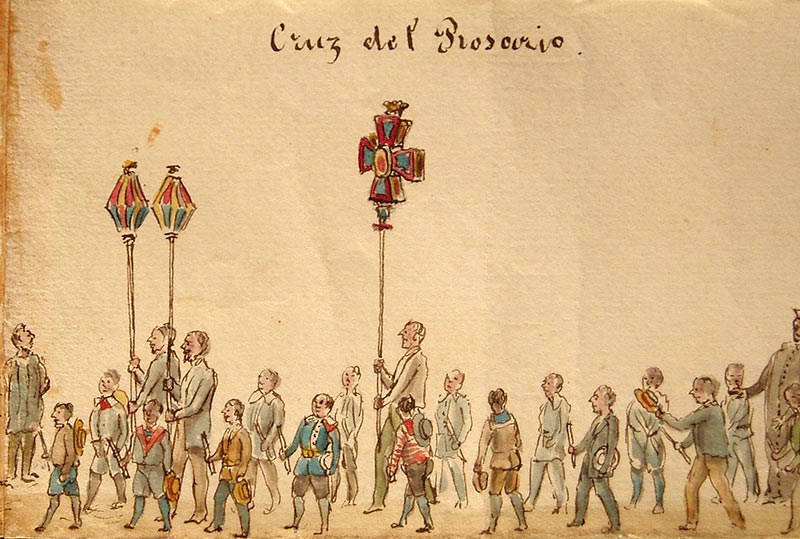 Cruz del Rosario.